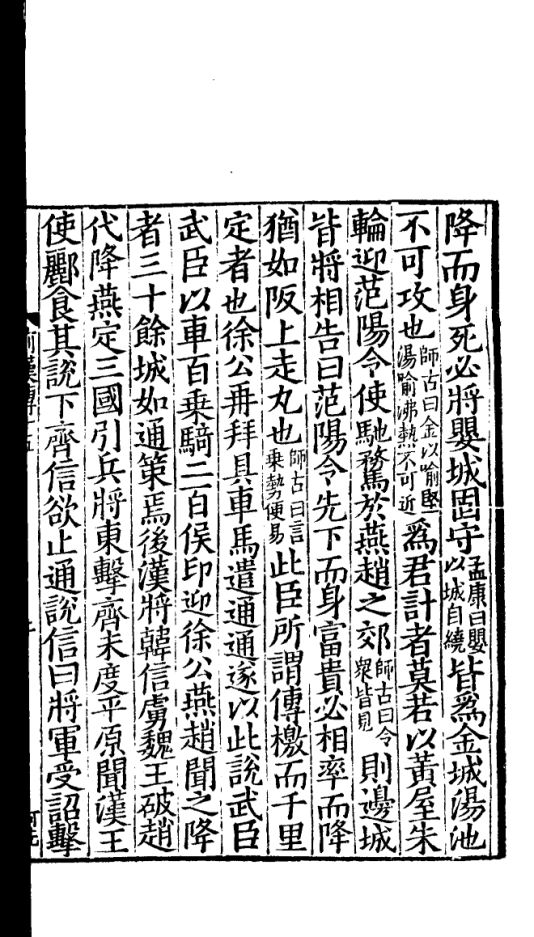 降而身死必將嬰城固守孟康曰嬰以城自繞皆爲金城湯池
不可攻也師古曰金以喻堅湯喻沸熱不可近爲君計者莫若以黃屋朱
輪迎范陽令使馳騖於燕趙之郊師古曰令衆皆見則邊城
皆將相告曰范陽令先下而身富貴必相率而降
猶如阪上走丸也師古曰言乗勢便易此臣所謂傳檄而千里
定者也徐公再拜具車馬遣通通遂以此說武臣
武臣以車百乗騎二百侯印迎徐公燕趙聞之降
者三十餘城如通策焉後漢將韓信虜魏王破趙
代降燕定三國引兵將東擊齊未度平原聞漢王
使酈食其說下齊信欲止通說信曰將軍受詔擊